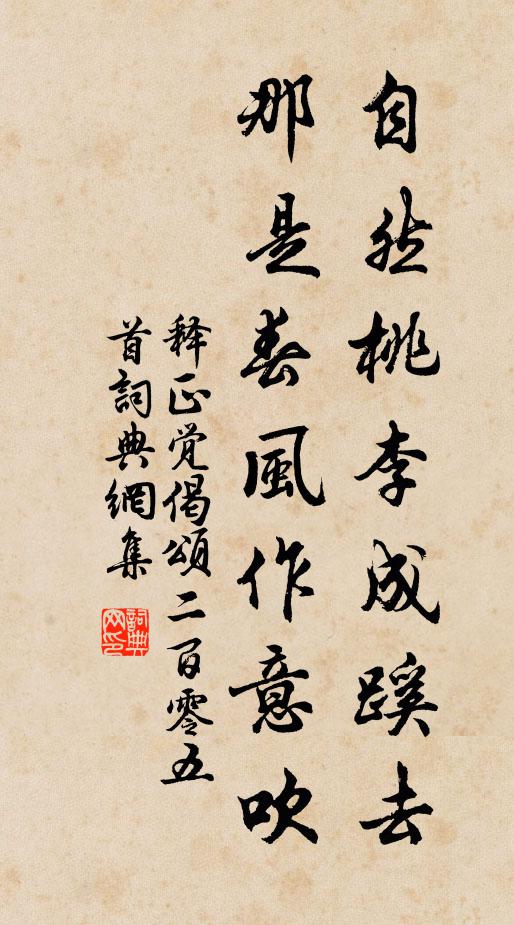 自然桃李成蹊去
那是春風作意吹
释正觉偈頌二百零五
首詞典網集
詞典網印